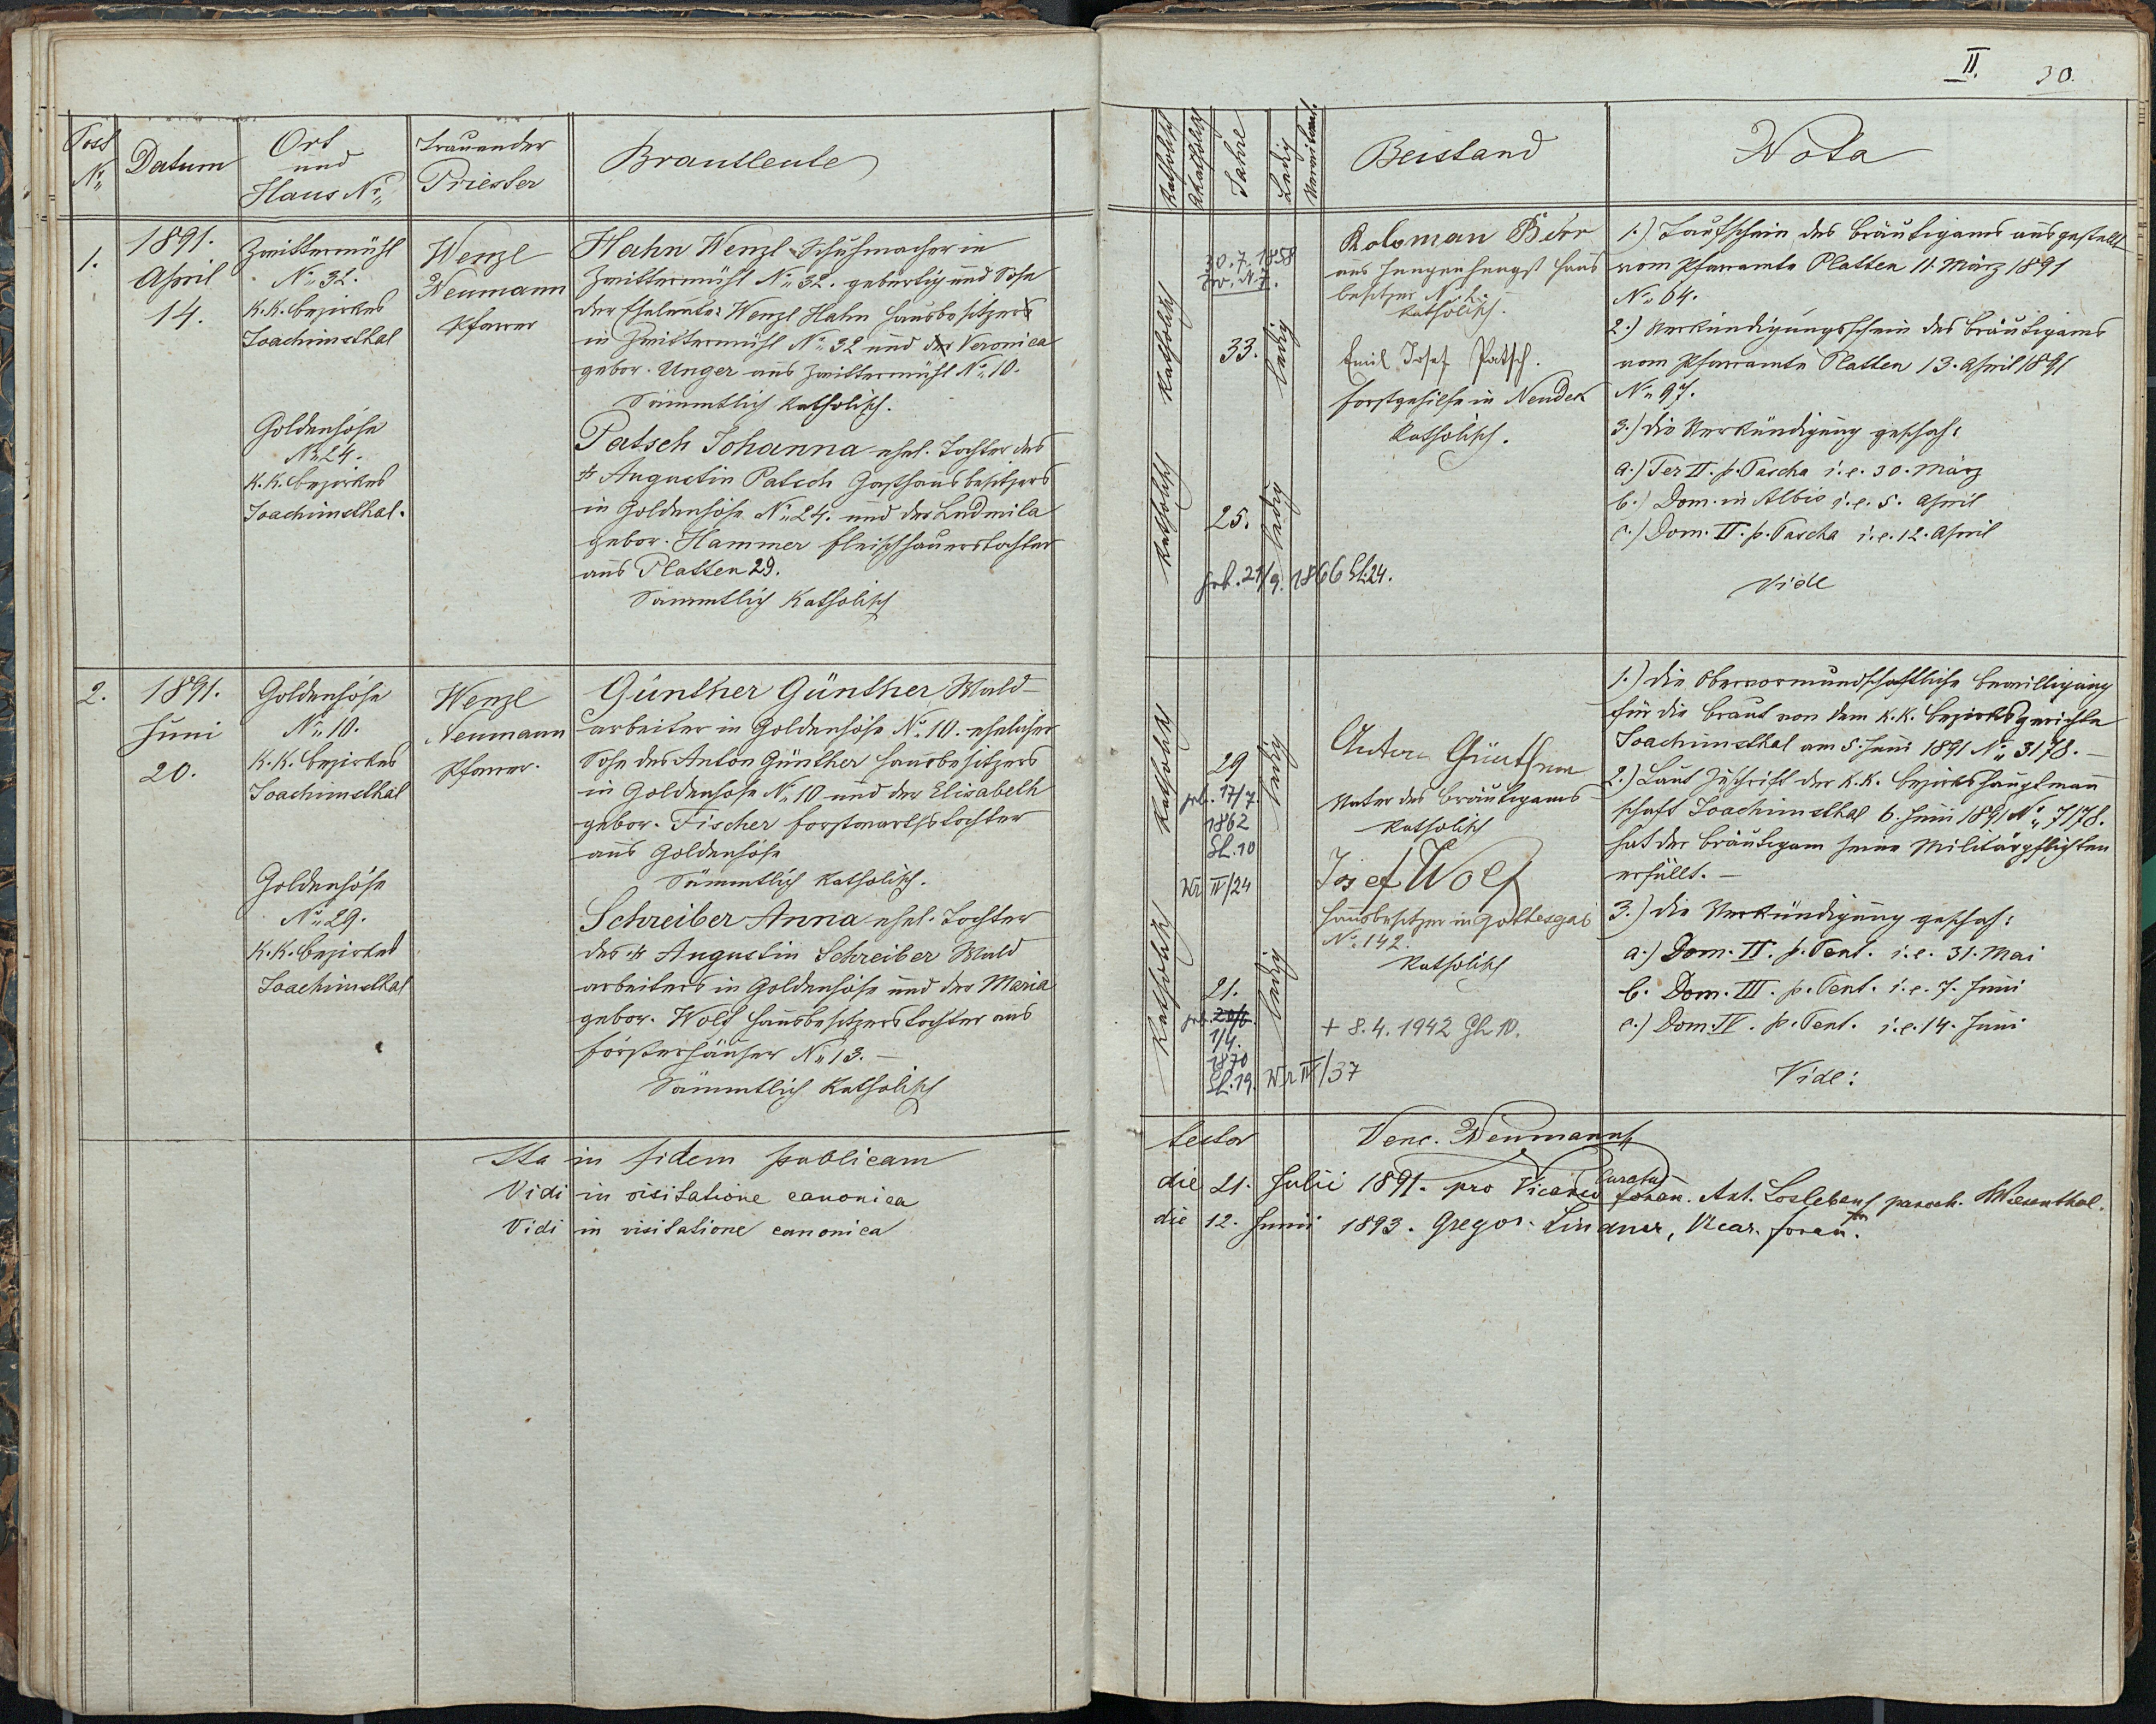 II. 30.
Post
No.
Datum
Ort
und
Haus No.
Trauender
Priester
Brautleute
Katholisch
Akatholisch
Jahre
Ledig
Verwitwet
Beistand
Nota
1.
1891.
April
14.
Zwittermühl
No. 32.
K.K. Bezirkes
Joachimsthal
Goldenhöhe
No. 24.
K.K. Bezirkes
Joachimsthal.
Wenzl
Neumann
Pfarrer
Hahn Wenzl Schuhmacher in
Zwittermühl No. 32. gebürtig und Sohn
der Eheleute: Wenzl Hahn Hausbesitzers
in Zwittermühl No. 32 und der Veronica
gebor. Unger aus Zwittermühl No. 10.
Sämmtlich Katholisch.
Patsch Johanna ehel. Tochter des
† Augustin Patsch Gasthausbesitzers
in Goldenhöhe No. 24. und der Ludmila
gebor. Hammer Fleischhauerstochter
aus Platten 29.
Sämmtlich Katholisch
Katholisch
30.7.1858
Zw. N 7.
33.
ledig
Katholisch
25.
ledig
geb. 21/9. 1866 Gh. 24.
Koloman Behr
aus Jungenhengst Haus
besitzer No. 2.
Katholisch.
Emil Josef Patsch.
Forstgehilfe in Neudek
Katholisch.
1.) Taufschein des Bräutigams ausgestellt
vom Pfarramte Platten 11. März 1891
No. 64.
2.) Verkündigungsschein des Bräutigams
vom Pfarramte Platten 13. April 1891
No. 97.
3.) Die Verkündigung geschah:
a.) Fer II. p. Pascha i.e. 30. März
b.) Dom. in Albis i.e. 5. April
c.) Dom. II. p. Pascha i.e. 12. April
Vide
2.
1891.
Juni
20.
Goldenhöhe
No. 10.
K.K. Bezirkes
Joachimsthal
Goldenhöhe
No. 29.
K.K. Bezirkes
Joachimsthal
Wenzl
Neumann
Pfarrer.
Günther Günther, Wald-
arbeiter in Goldenhöhe No. 10. ehelicher
Sohn des Anton Günther Hausbesitzers
in Goldenhöhe No. 10 und der Elisabeth
gebor. Fischer Forstwarthstochter
aus Goldenhöhe
Sämmtlich Katholisch.
Schreiber Anna ehel. Tochter
des † Augustin Schreiber Wald
arbeiters in Goldenhöhe und der Maria
gebor. Wolf Hausbesitzerstochter aus
Försterhäuser No. 13. –
Sämmtlich Katholisch
Katholisch
29
geb. 17/7.
1862
Gh. 10
Wr II/24
ledig
Katholisch
21.
geb. 20/6.
1/4.
1870
Gh. 19. Wr II/37
ledig
Anton Günther
Vater des Bräutigams
Katholisch
Josef Wolf
Hausbesitzer in Gottesgab
No. 142.
Katholisch
+ 8.4.1942 Gh 10.
1.) Die Obervormundschaftliche Bewilligung
für die Braut von dem K.K. Bezirksgerichte
Joachimsthal am 5. Juni 1891 No. 3178. –
2.) Laut Zuschrift der K.K. Bezirkshauptmann
schaft Joachimsthal 6. Juni 1891 No. 7178.
hat der Bräutigam seine Militärpflichten
erfüllt. –
3.) Die Verkündigung geschah:
a.) Dom. II. p. Pent. i.e. 31. Mai
b. Dom. III. p. Pent. i.e. 7. Juni
c.) Dom. IV. p. Pent. i.e. 14. Juni
Vide:
Ita in fidem publicam testor Venc. Neumann
Curatus
Vidi in visitatione canonica die 21. Julii 1891. pro Vicario foran. Ant. Loslebens paroch. Wiesenthal.
Vidi in visitatione canonica die 12. Junii 1893. Gregor Lindner, Vicar. foran.